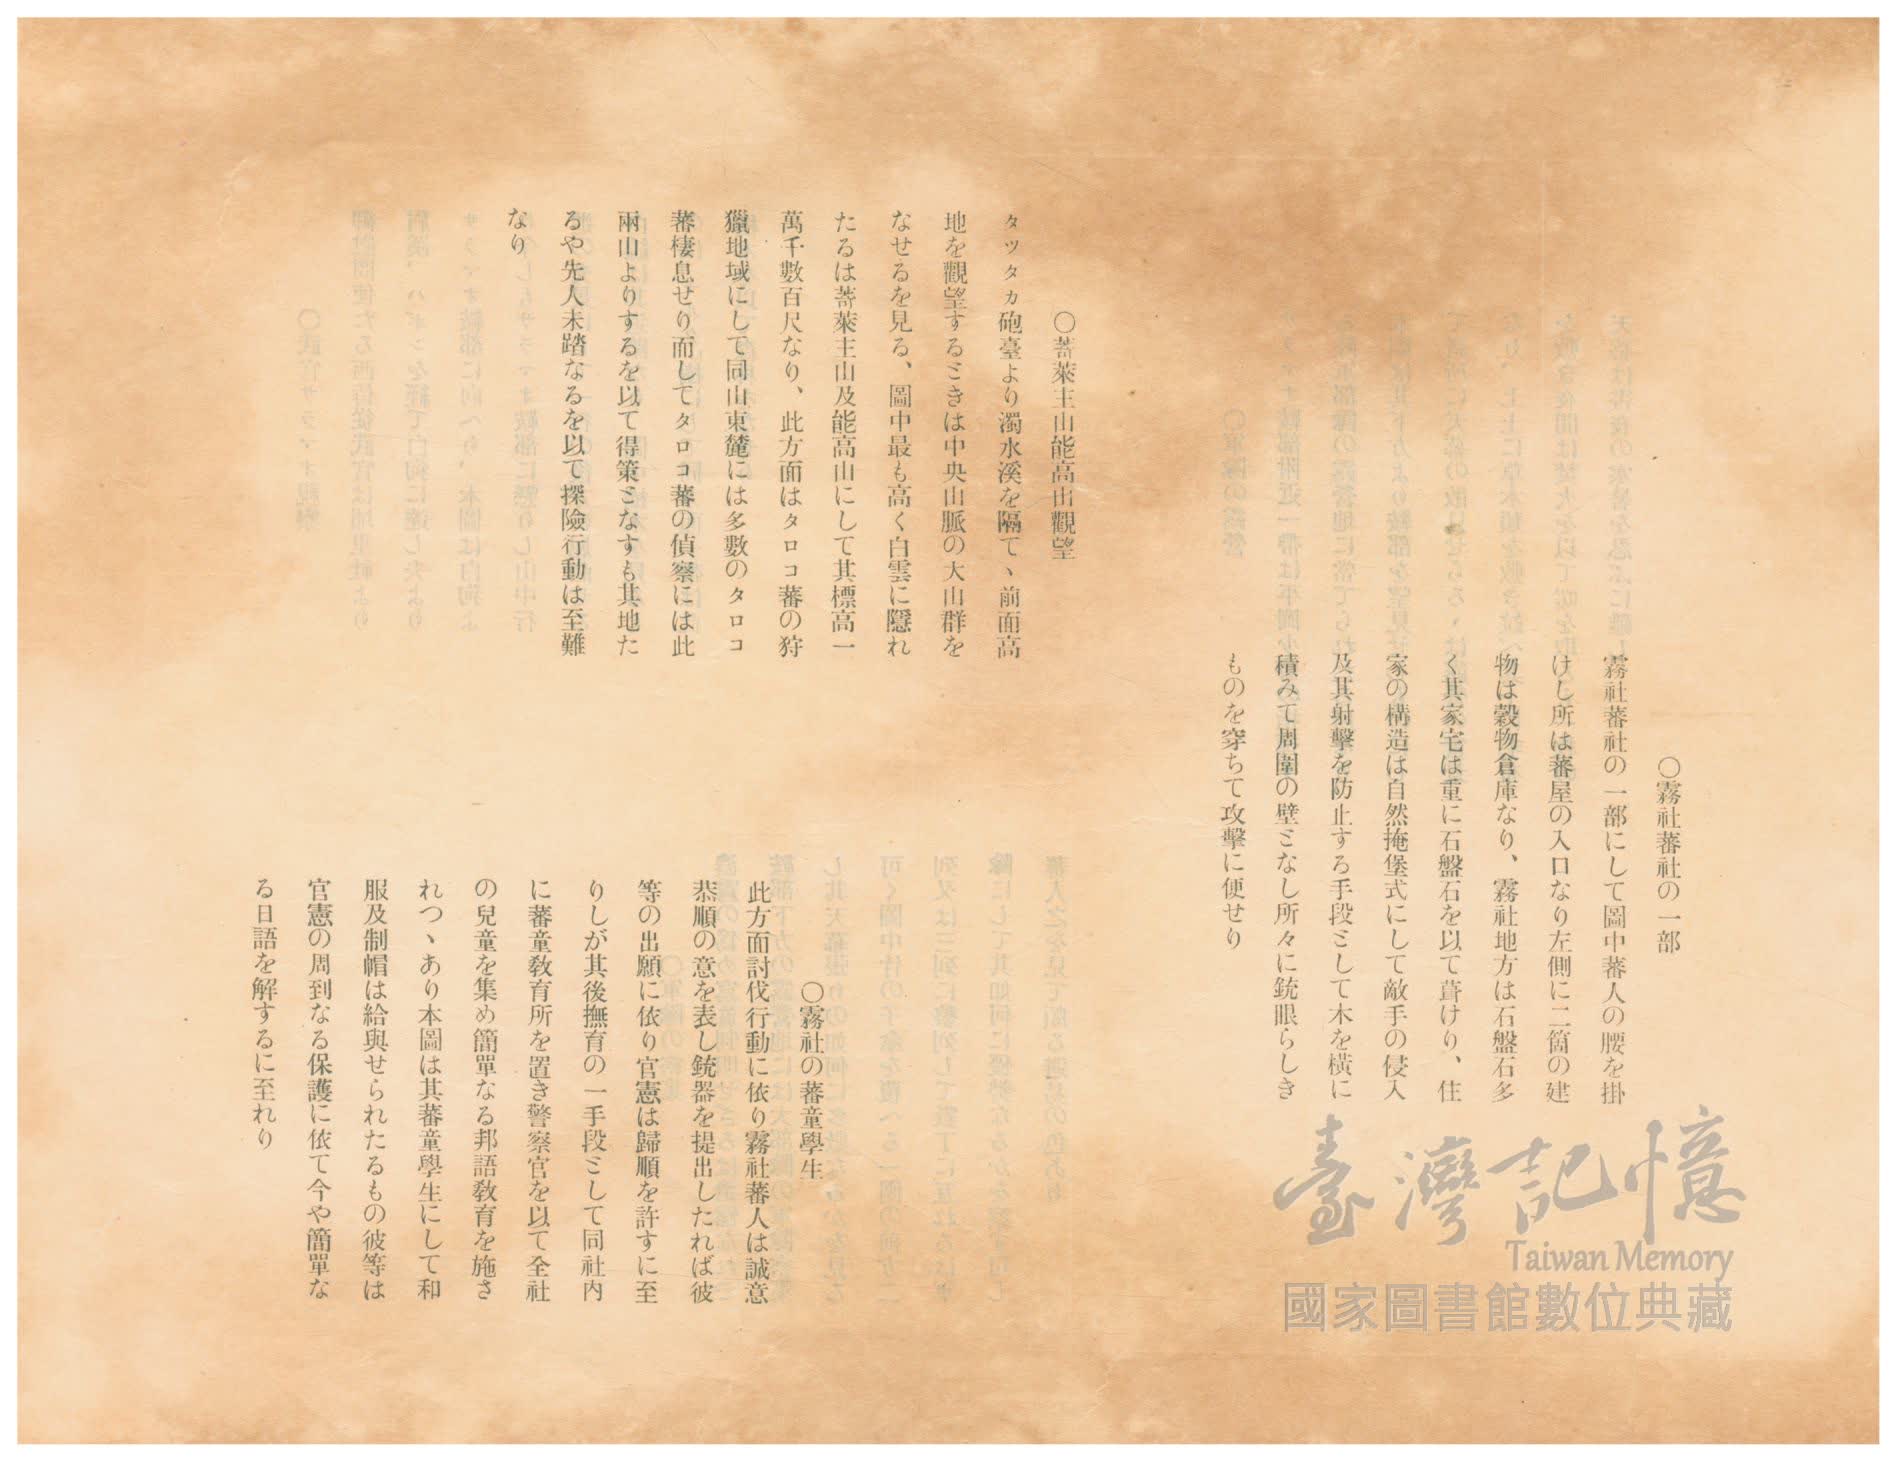 〇霧社蕃社の一部
霧社蕃社の一部にして圖中蕃人の腰を掛
けし所は蕃屋の入口なり左側に二箇の建
物は穀物倉庫なり、霧社地方は石盤石多
く其家宅は重に石盤石を以て葺けり、住
家の構造は自然掩堡式にして敵手の侵入
及其射擊を防止する手段ミして木を橫に
積みて周圍の壁ミなし所々に銃眼らしき
ものを穿ちて攻擊に便せり
〇蒼萊主山能高山觀望
タツタカ砲臺より濁水溪を隔てヽ前面高
地を觀望するミきは中央山脈の大山群を
なせるを見る、圖中最も高く白雲に隱れ
たるは蒼萊主山及能高山にして其標高一
萬千數百尺なり、此方面はタロコ蕃の狩
獵地域にして同山東麓には多數のタロコ
蕃棲息せり而してタロコ蕃の偵察には此
兩山よりするを以て得策ミなすも其地た
るや先人未踏なるを以て探險行動は至難
なり
〇霧社の蕃童學生
此方面討伐行動に依り霧社蕃人は誠意
恭順の意を表し銃器を提出したれば彼
等の出願に依り官憲は歸順を許すに至
りしが其後撫育の一手段ミして同社内
に蕃童敎育所を置き警察官を以て全社
の兒童を集め簡單なる邦語敎育を施さ
れつヽあり本圖は其蕃童學生にして和
服及制帽は給與せられたるもの彼等は
官憲の周到なる保護に依て今や簡單な
る日語を解するに至れり
臺灣記憶
Taiwan Memory
國家圖書館數位典藏